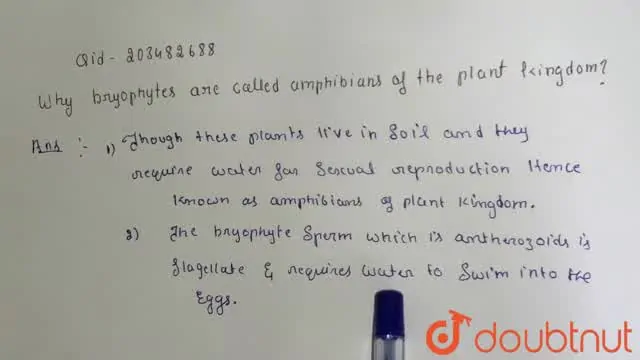 Qid - 203482688
Why bryophytes are called amphibians of the plant kingdom?
Ans :- 1) Though these plants live in soil and they
require water for sexual reproduction Hence
known as amphibians of plant kingdom.
2) The bryophyte sperm which is antherozoids is
flagellate & requires water to swim into the
Eggs.
doubtnut